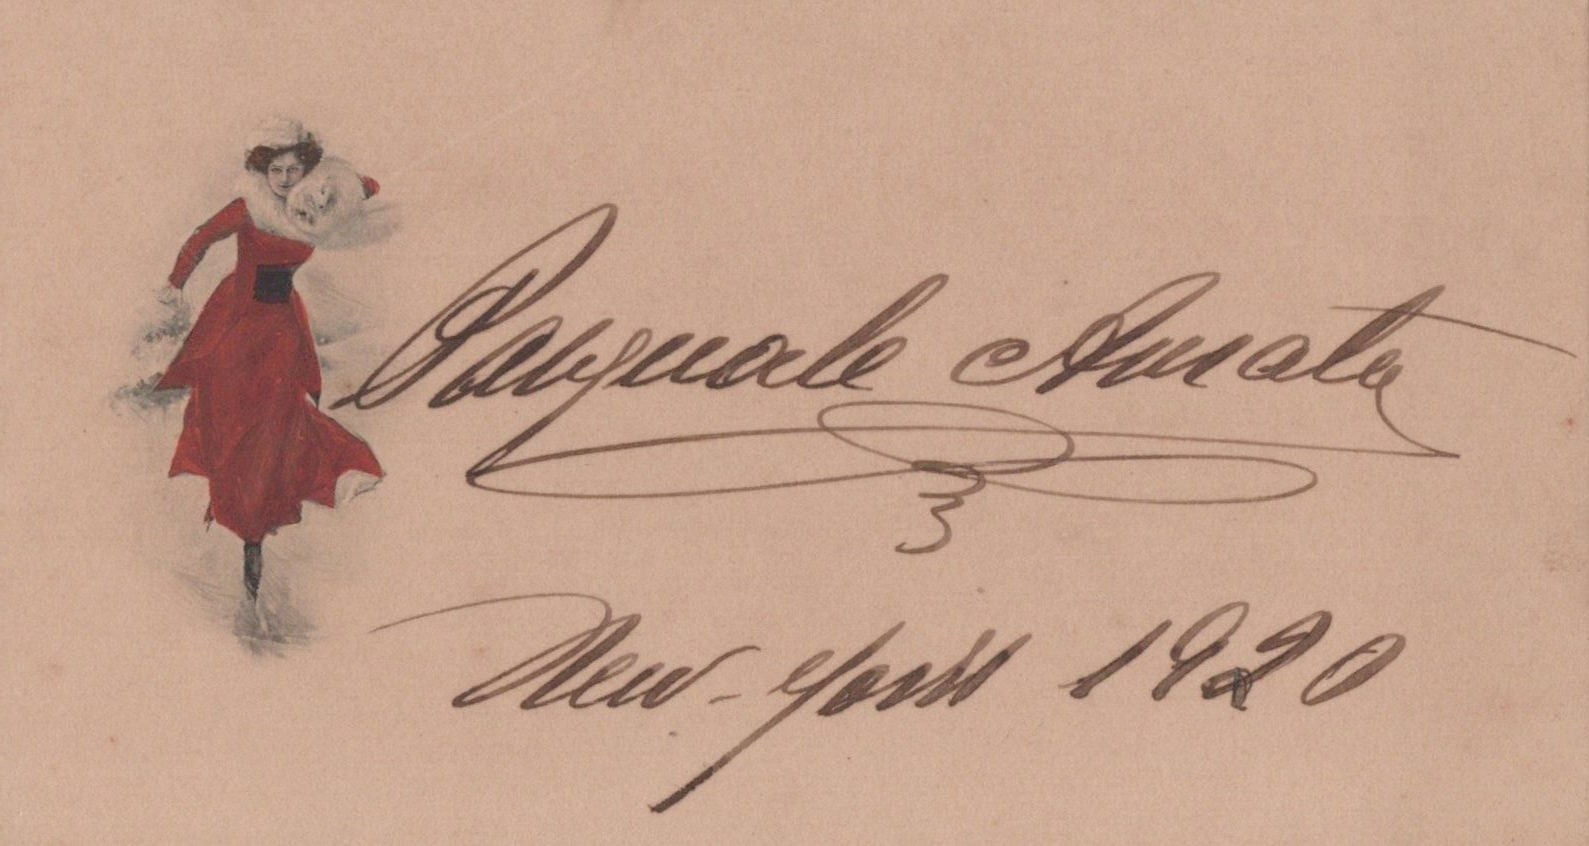 Pasquale Amato
New-York 1920